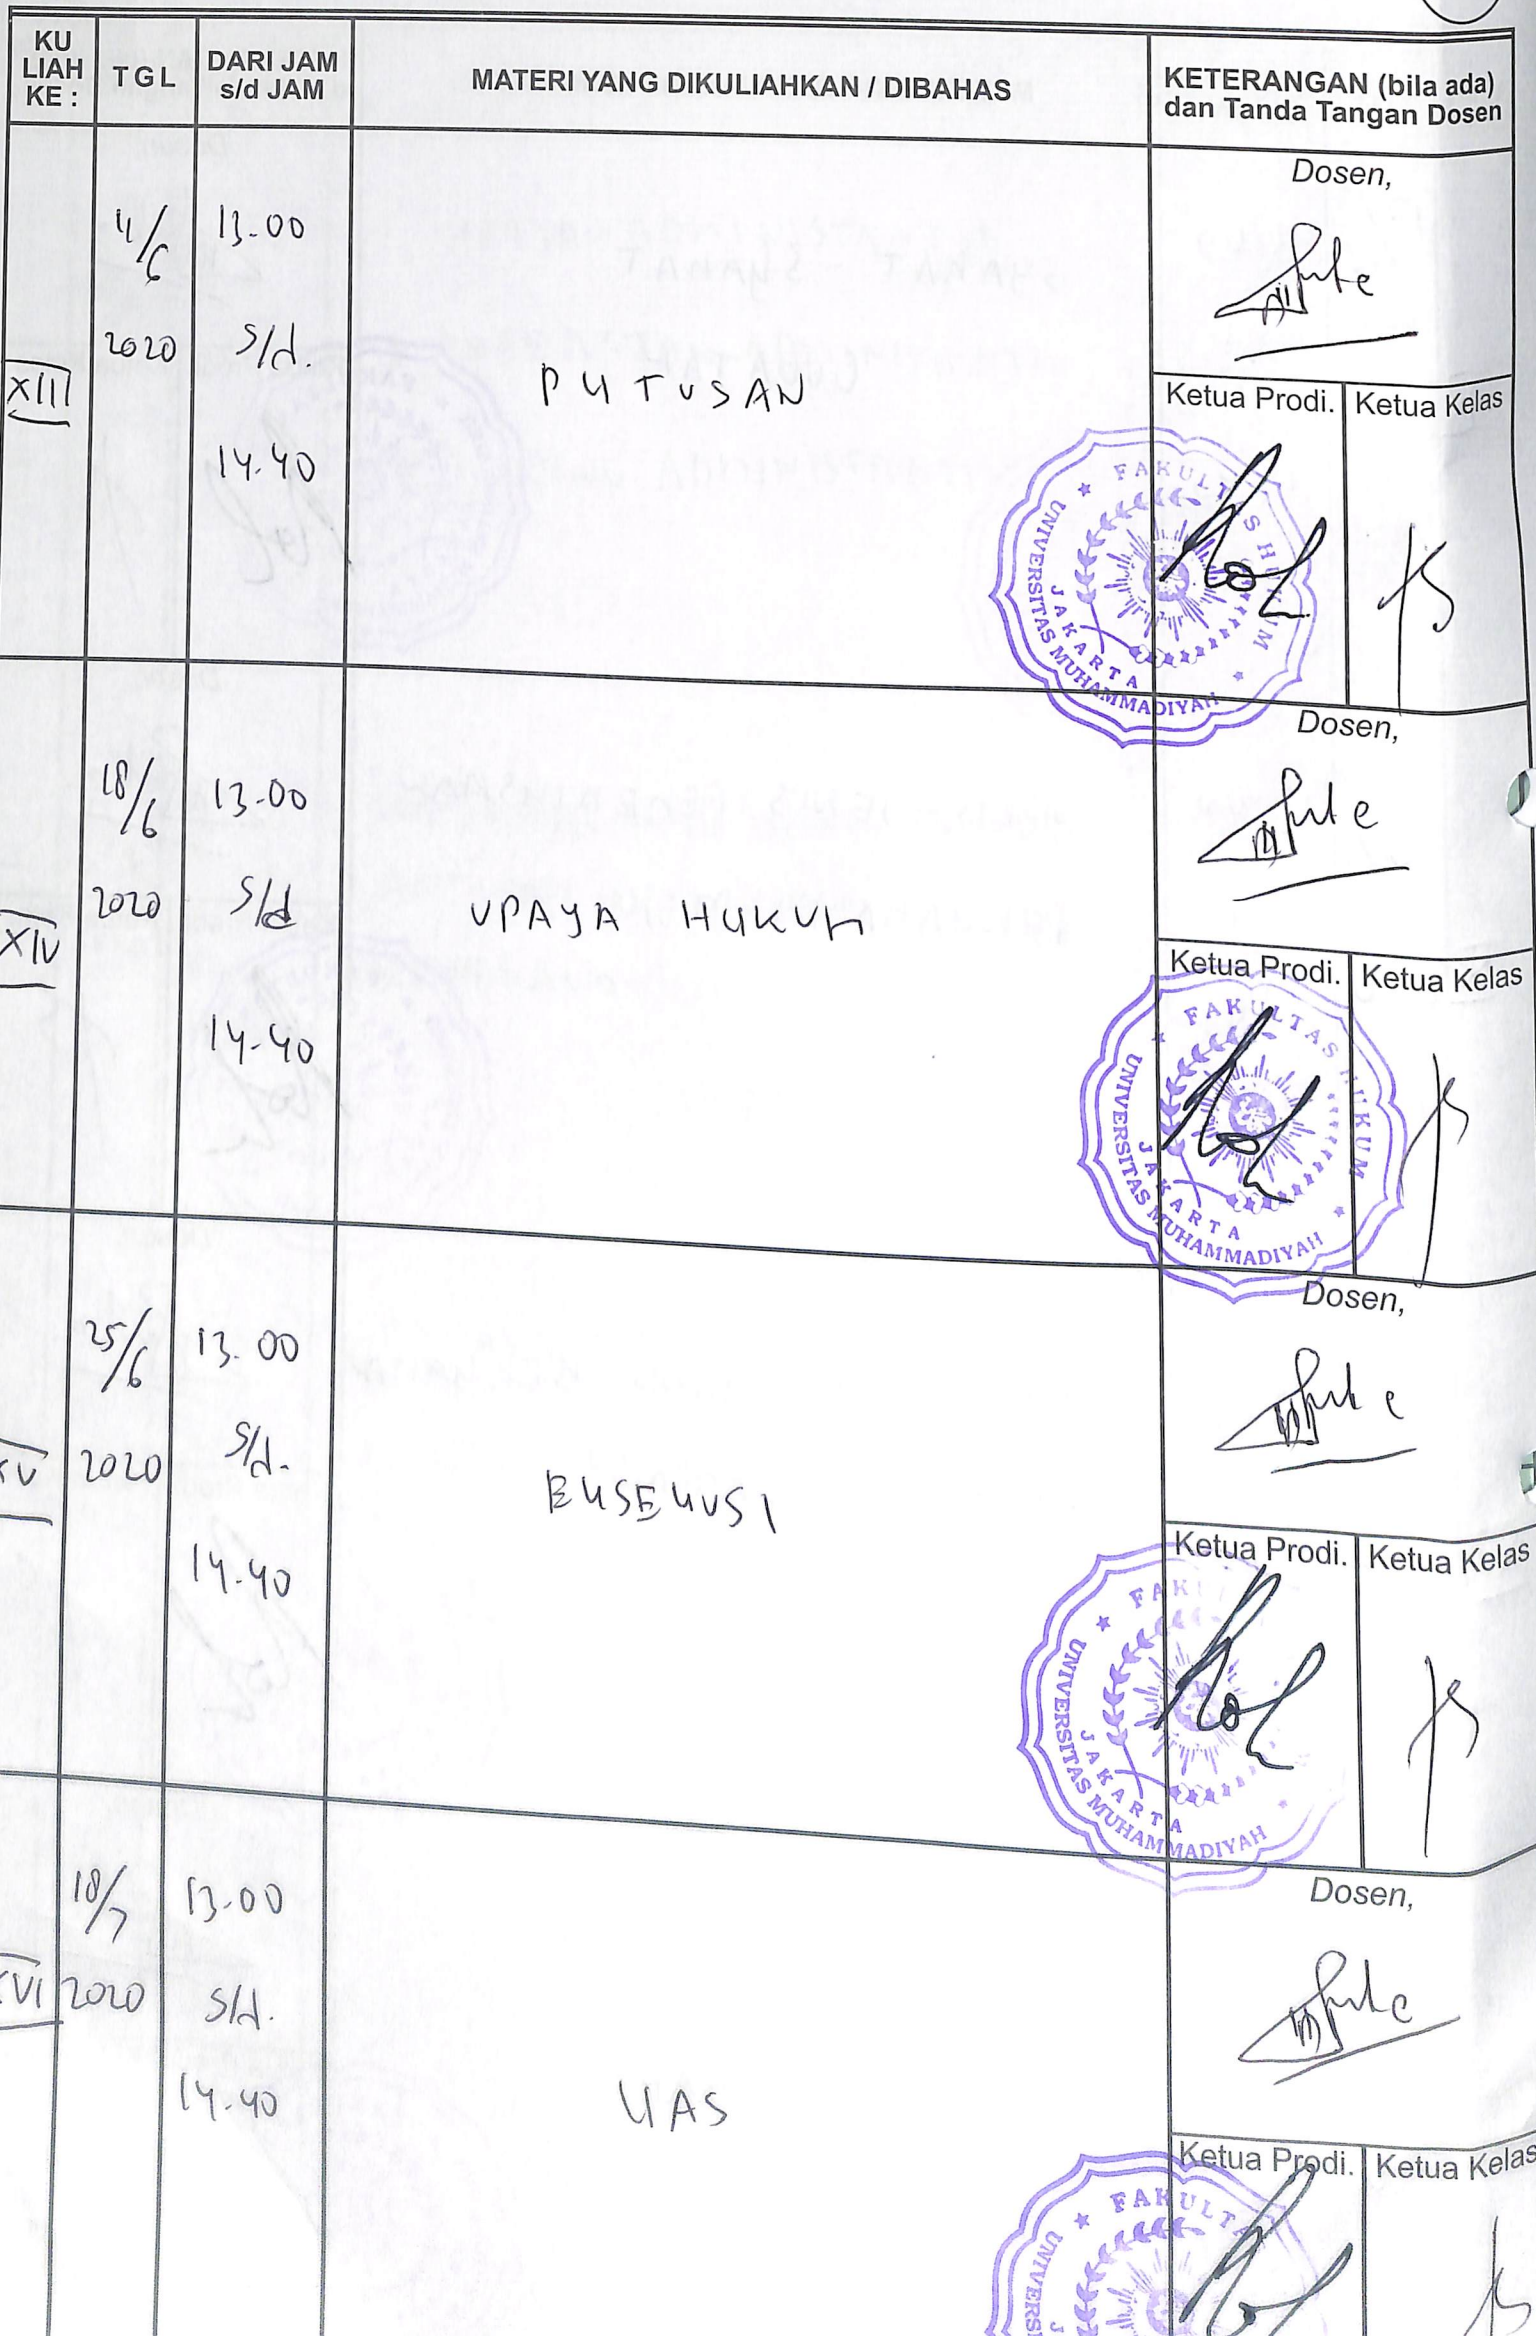 KU LIAH KE :
TGL
DARI JAM
s/d JAM
MATERI YANG DIKULIAHKAN / DIBAHAS
KETERANGAN (bila ada)
dan Tanda Tangan Dosen
XIII
11/6
2020
13.00
s/d.
14.40
PUTUSAN
Dosen,
Ketua Prodi.
Ketua Kelas
FAKULTAS HUKUM
UNIVERSITAS MUHAMMADIYAH
JAKARTA
XIV
18/6
2020
13.00
s/d
14.40
UPAYA HUKUM
Dosen,
Ketua Prodi.
Ketua Kelas
FAKULTAS HUKUM
UNIVERSITAS MUHAMMADIYAH
JAKARTA
XV
25/6
2020
13.00
s/d.
14.40
EKSEKUSI
Dosen,
Ketua Prodi.
Ketua Kelas
UNIVERSITAS MUHAMMADIYAH
JAKARTA
XVI
2020
13.00
s/d.
14.40
UAS
Dosen,
Ketua Prodi.
Ketua Kelas
FAKULTA
UNIVERS